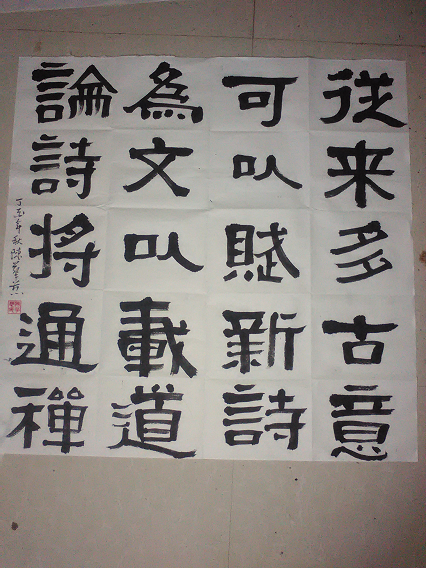 從来多古意
可以賦新詩
為文以載道
論詩將通禪
丁亥年秋